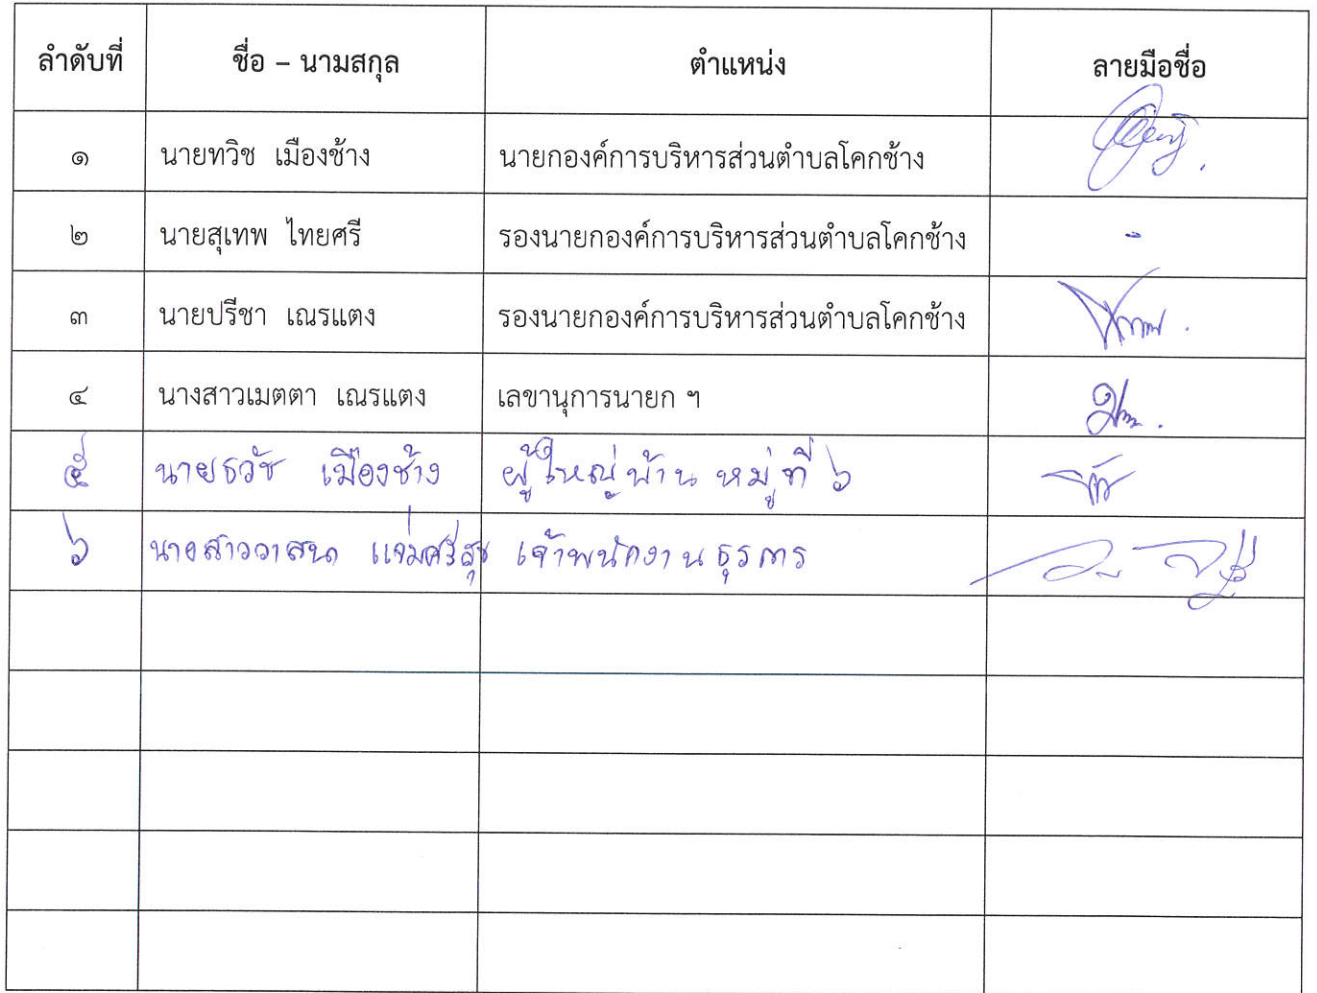 ลำดับที่ ชื่อ – นามสกุล ตำแหน่ง ลายมือชื่อ
๑ นายทวิช เมืองช้าง นายกองค์การบริหารส่วนตำบลโคกช้าง
๒ นายสุเทพ ไทยศรี รองนายกองค์การบริหารส่วนตำบลโคกช้าง -
๓ นายปรีชา เณรแตง รองนายกองค์การบริหารส่วนตำบลโคกช้าง
๔ นางสาวเมตตา เณรแตง เลขานุการนายก ฯ
๕ นายธวัช เมืองช้าง ผู้ใหญ่บ้าน หมู่ที่ ๖
๖ นางสาววาสนา แจ่มศรีสุข เจ้าพนักงานธุรการ